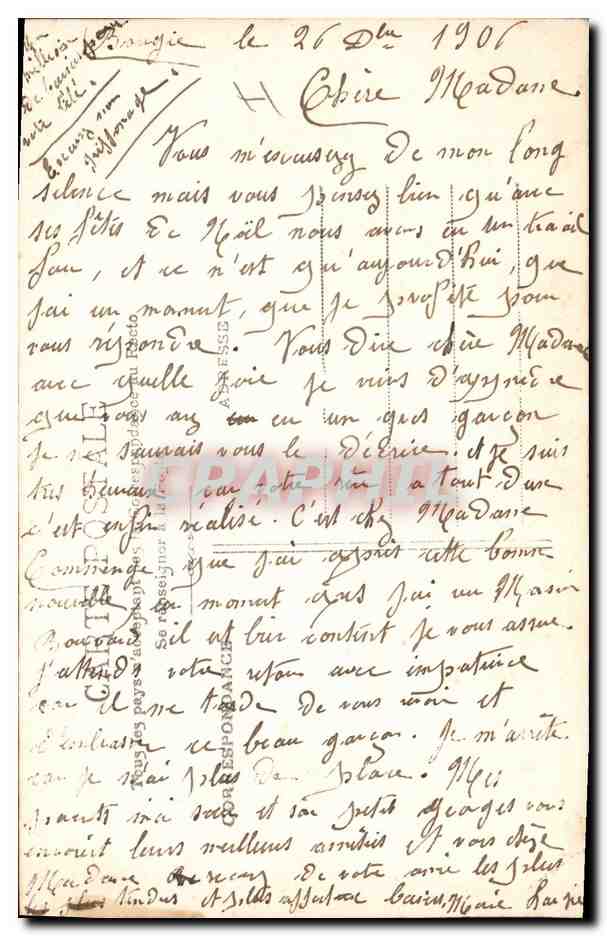 Bougie le 26 Xbre 1906
Chère Madame
Vous m'excuserez de mon long
silence mais vous pensez bien qu'avec
ses fêtes de Noël nous avons eu un travail
fou, et ce n'est qu'aujourd'hui, que
j'ai un moment, que je profite pour
vous répondre. Vous dire chère Madame
avec quelle joie je viens d'apprendre
que vous avez eu un gros garçon
je ne saurais vous le décrire. et je suis
très heureuse car votre rêve a tout deux
c'est enfin réalisé. C'est chez Madame
Commenge que j'ai appris cette bonne
nouvelle au moment que j'ai vu Masin
il est bien content je vous assure.
J'attends votre retour avec impatience
car il me tarde de vous voir et
d'embrasser ce beau garçon. Je m'arrête
car je n'ai plus de place. Mes
parents ma sœur et son petit Georges vous
envoient leurs meilleurs amitiés et vous chère
Madame recevez de votre amie les plus
tendres et plus affectueux baisers, Marie
un
million
de baisers pour
votre bébé.
Excusez mon
griffonage.
CARTE POSTALE
Tous les pays n'acceptent pas la correspondance au Recto
Se renseigner à la Poste
CORRESPONDANCE
ADRESSE
CPAPHIL